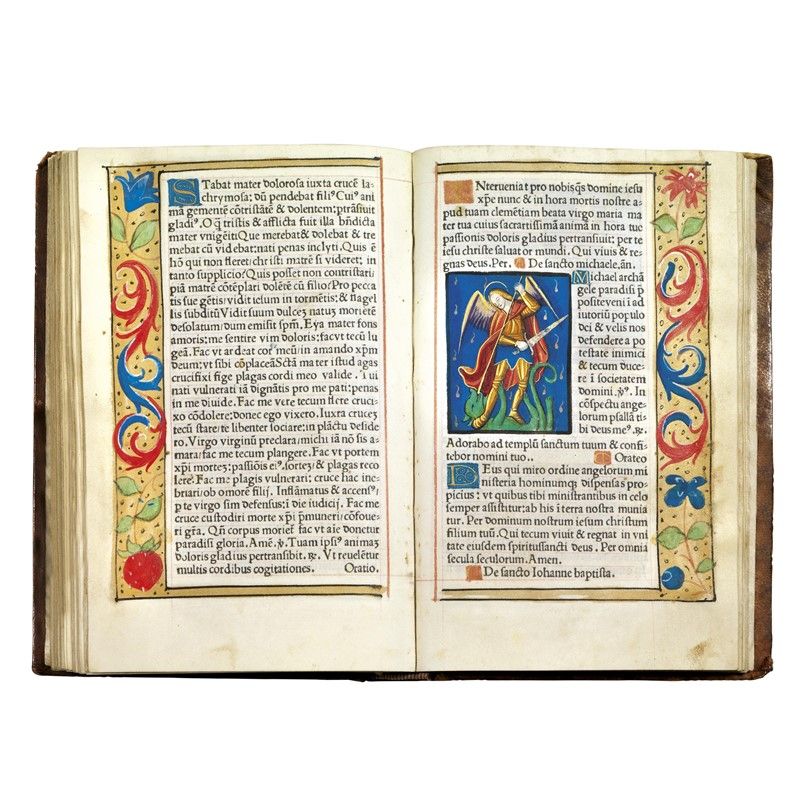 STabat mater dolorosa iuxta crucē la-
chrymosa: dū pendebat fili⁹ Cui⁹ ani
mā gementē cōtristātē & dolentem: ptrāsiuit
gladi⁹. O q̄ tristis & afflicta fuit illa bn̄dicta
mater vnigēiti Que merebat & dolebat & tre
mebat cū videbat: nati penas inclyti. Quis ē
hō qui non fleret: christi matrē si videret; in
tanto supplicio: Quis posset non contristari:
piā matrē cōtēplari dolētē cū filio: Pro pecca
tis sue gētis: vidit iesum in tormētis: & flagel
lis subditū Vidit suum dulcez natuz moriētē
desolatum: dum emisit spm̄. Eya mater fons
amoris: me sentire vim doloris: fac vt tecū lu
geā. Fac vt ardeat cor meū: in amando xp̄m
deum: vt sibi cōplaceā Sctā mater istud agas
crucifixi fige plagas cordi meo valide. Tui
nati vulnerati iā dignātis pro me pati: penas
in me diuide. Fac me vere tecum flere cruci-
xo cōdolere: donec ego vixero. Iuxta crucez
tecū stare: te libenter sociare: in plāctu deside
ro. Virgo virginū preclara: michi iā nō sis a-
mara: fac me tecum plangere. Fac vt portem
xp̄i mortez: passiōis ei⁹ sortez & plagas reco
lere Fac me plagis vulnerari: cruce hac ine-
briari: ob omorē filij. Inflāmatus & accens⁹:
p te virgo sim defensus: ī die iudicij. Fac me
cruce custodiri morte xp̄i p̄muneri: cōfoue-
ri gr̄a. Qn̄ corpus moriet̄ fac vt aīe donctur
paradisi gloria. Amē. ℣. Tuam ipsi⁹ animaz
doloris gladius pertransibit. ℞. Vt reueletur
multis cordibus cogitationes. Oratio.
INterueniat pro nobis q̄s domine iesu
xp̄e nunc & in hora mortis nostre a-
pud tuam clemētiam beata virgo maria ma
ter tua cuius sacratissimā animā in hora tue
passionis doloris gladius pertransiuit: per te
iesu christe saluator mundi. Qui viuis & re-
gnas deus. Per. De sancto michaele. an̄.
Michael archā
gele paradisi p̄
posite veni ī ad
iutoriū populo
dei & velis nos
defendere a po
testate inimici
& tecum duce-
re ī societatem
domini. ℣. In
cōspectu ange-
lorum psallā ti-
bi deus me⁹. ℞.
Adorabo ad templū sanctum tuum & confi-
tebor nomini tuo. Orateo
DEus qui miro ordine angelorum mi
nisteria hominumq; dispensas pro-
picius: vt quibus tibi ministrantibus in celo
semper assistitur: ab his ī terra nostra munia
tur. Per dominum nostrum iesum christum
filium tuū. Qui tecum viuit & regnat in vni
tate eiusdem spiritussancti deus. Per omnia
secula seculorum. Amen.
De sancto Iohanne baptista.